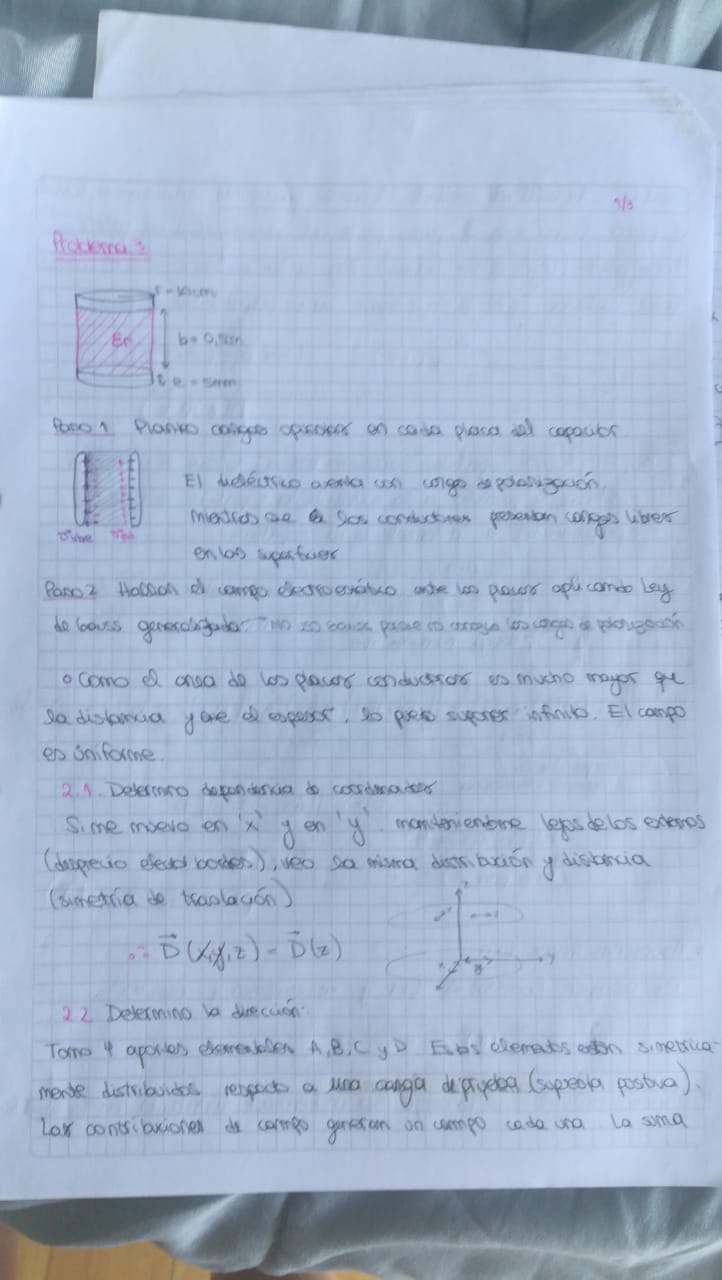 1/3
Problema 3
r = 10cm
Er
b = 0,5cm
e = 5mm
Paso 1 Planteo cargas opuestas en cada placa del capacitor.
El dieléctrico cuenta con cargas de polarización.
mientras que los conductores presentan cargas libres
σlibre σpol
en las superficies
Paso 2 Hallar el campo electrostático entre las placas aplicando Ley
de Gauss generalizada. no conozco las cargas de polarización
o Como el area de las placas conductoras es mucho mayor que
la distancia y que el espesor, lo puedo suponer infinito. El campo
es uniforme.
2.1. Determino dependencia de coordenadas
Si me muevo en 'x' y en 'y' manteniendome lejos de los extremos
(desprecio efectos bordes), veo la misma distribución y distancia
(simetría de traslación)
z
∴ D⃗(x,y,z) = D⃗(z)
y
2.2 Determino la dirección:
Tomo 4 aportes elementales A, B, C y D Estos elementos están simetrica-
mente distribuidos respecto a una carga de prueba (supuesta positiva).
Las contribuciones de campo generan un campo cada una La suma